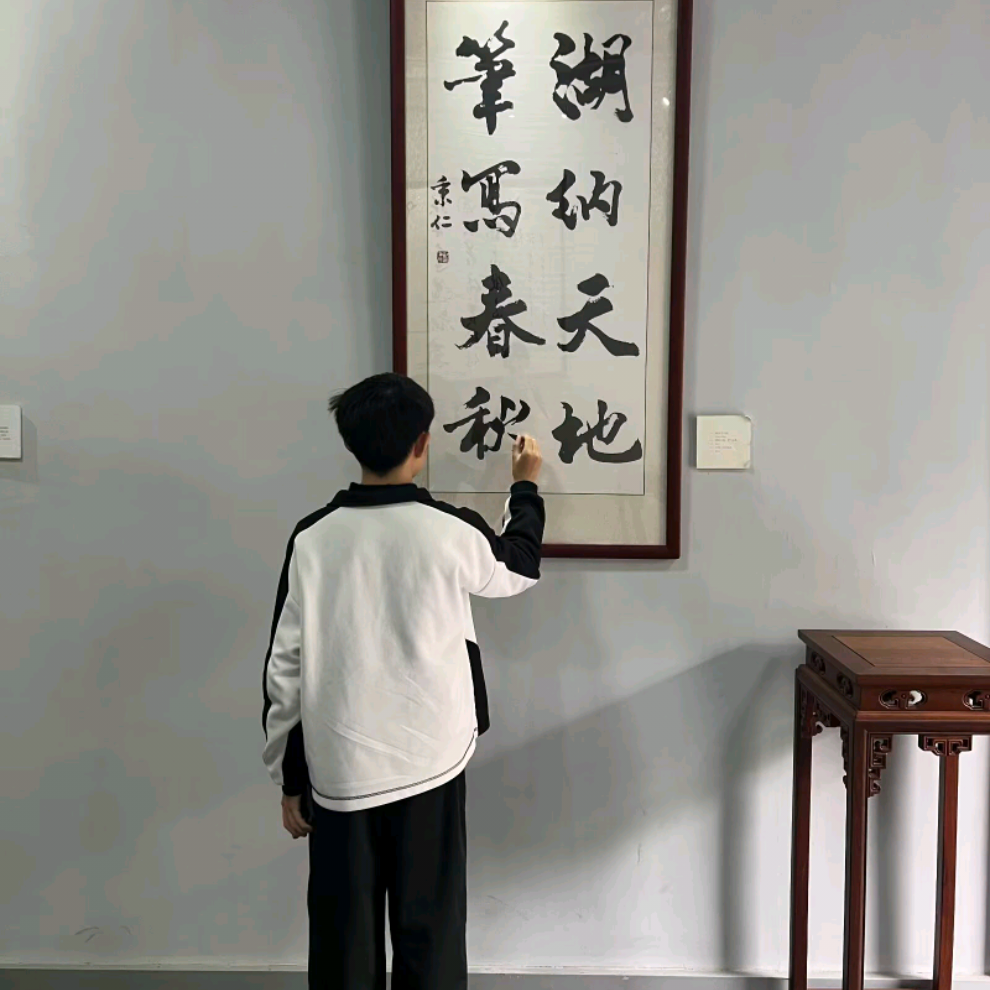 湖纳天地
筆寫春秋
秉仁